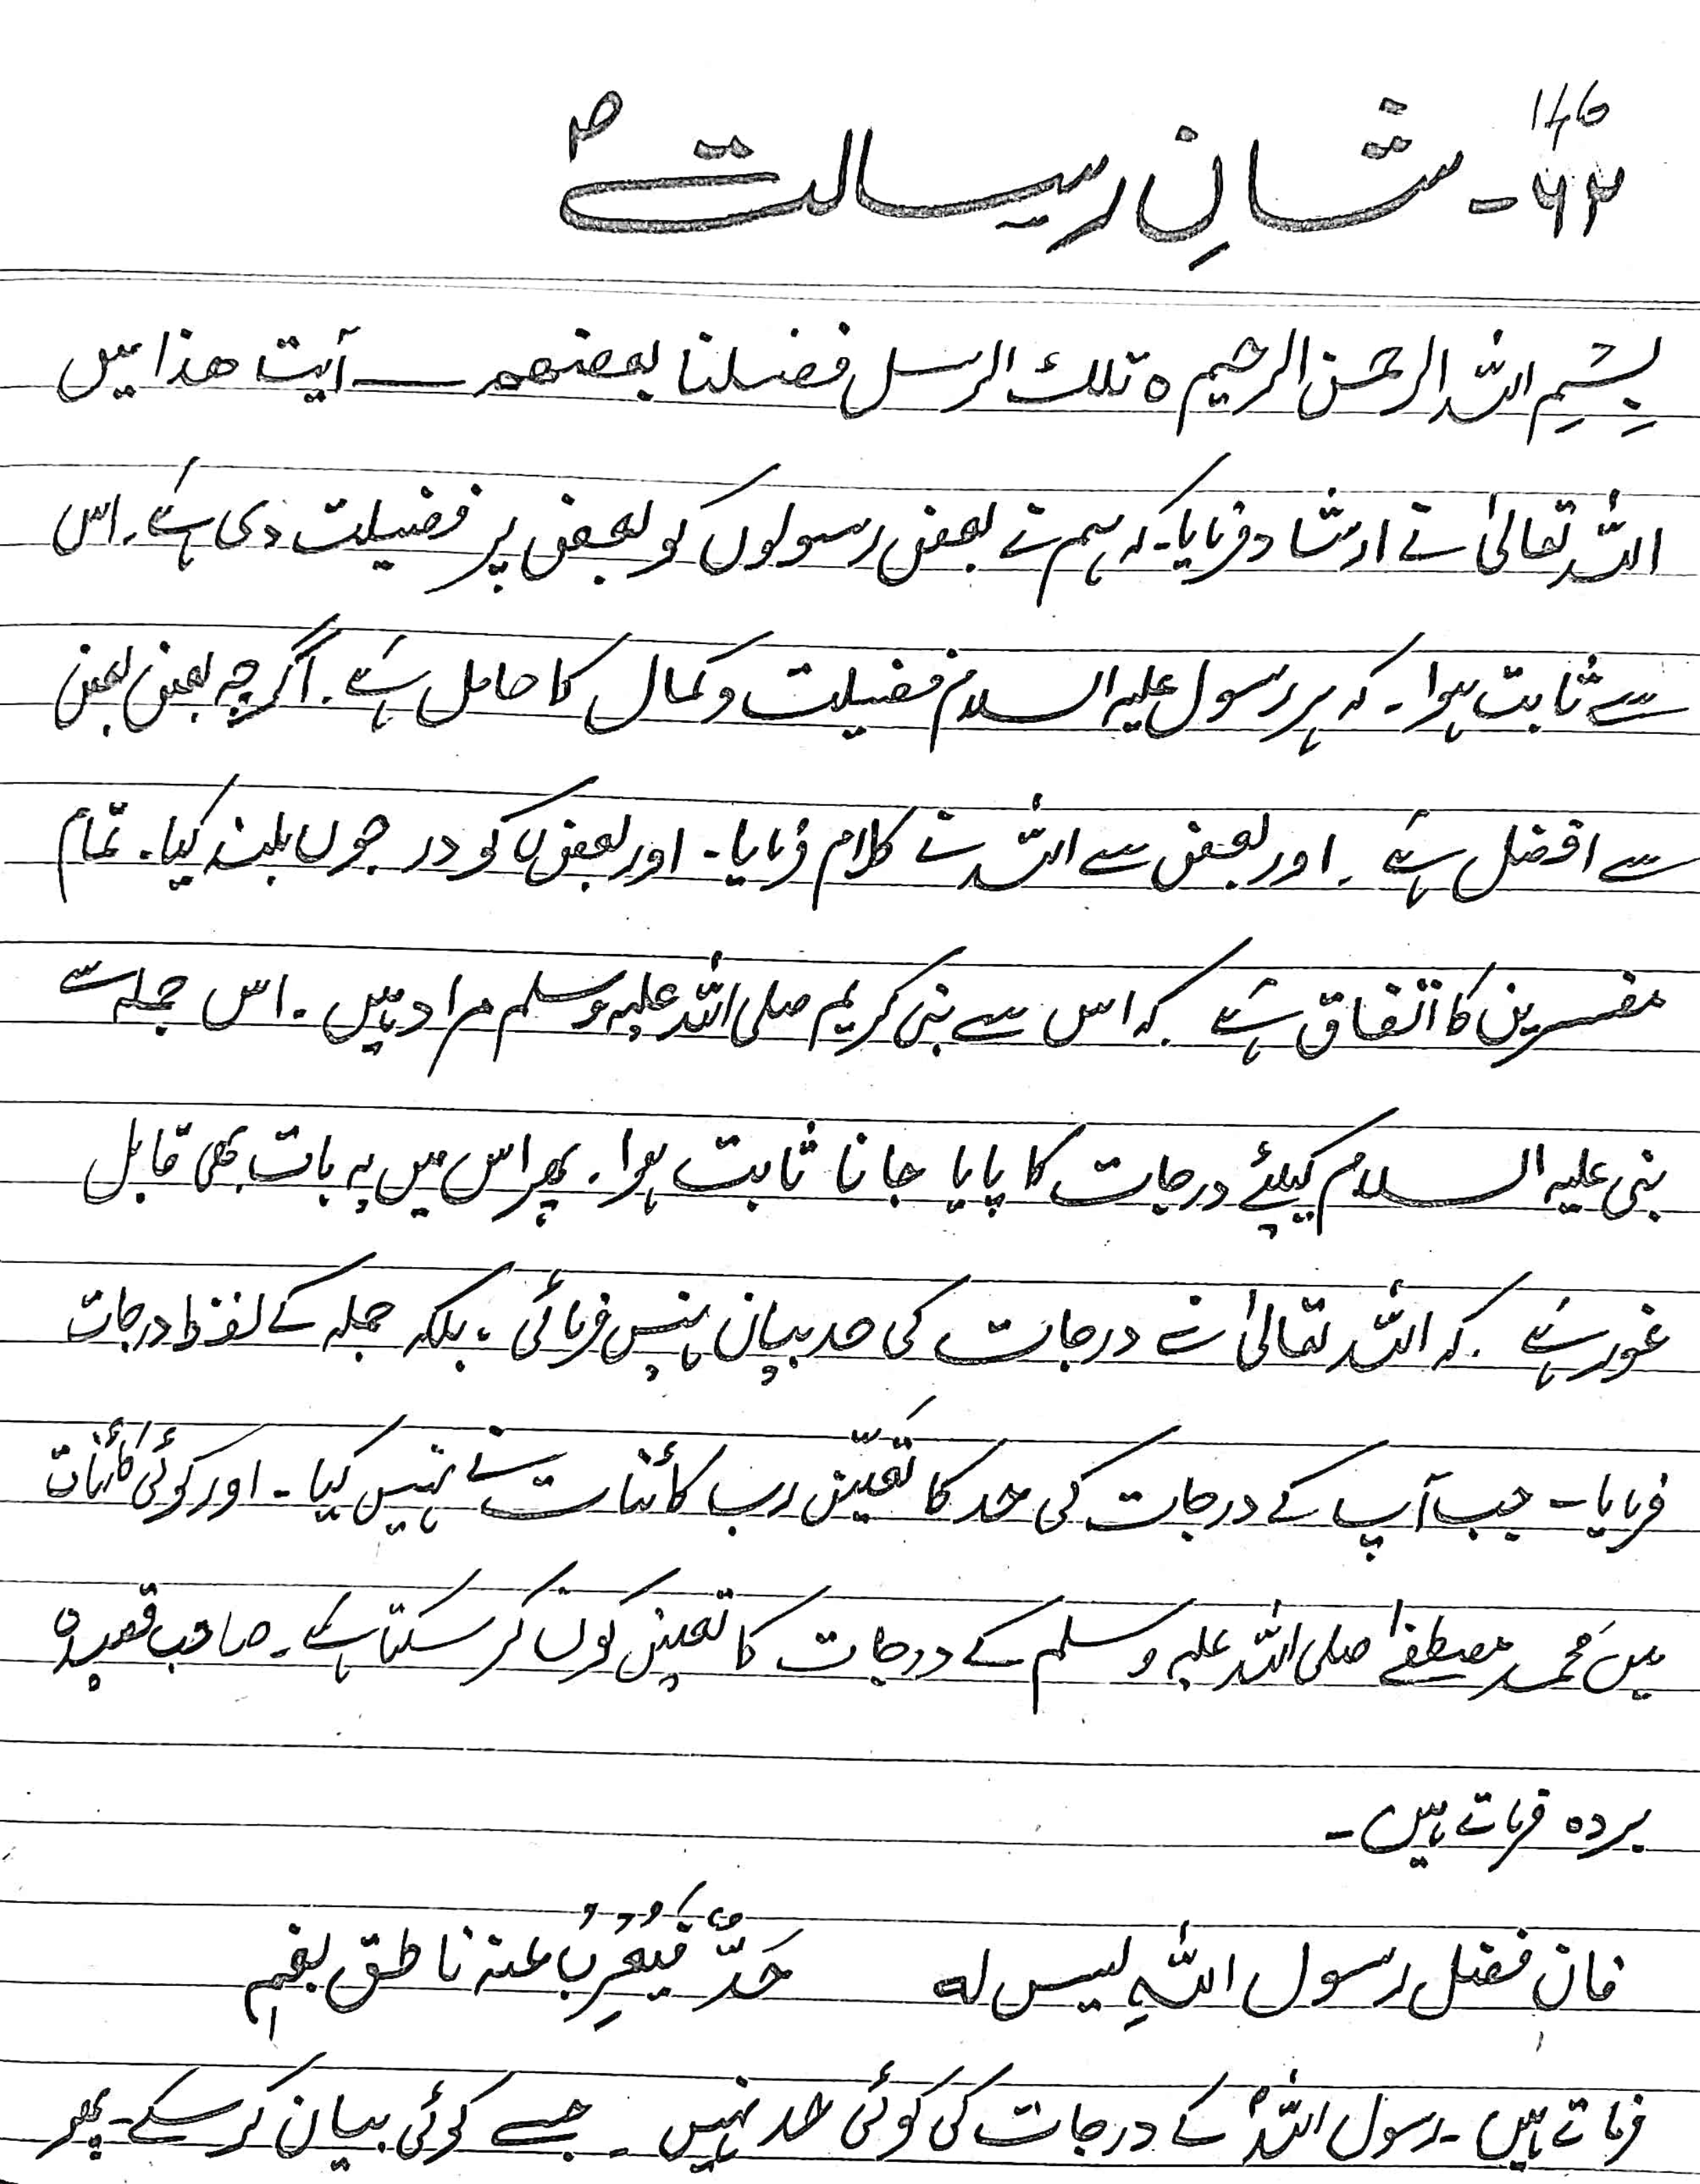 146
۶۲- شانِ رسالت ؐ
بِسْمِ اللہ الرحمن الرحیم ہ تلک الرسل فضلنا بعضھم — آیت ھذا میں
اللہ تعالیٰ نے ارشاد فرمایا۔ کہ ہم نے بعض رسولوں کو بعض پر فضیلت دی ہے۔ اس
سے ثابت ہوا۔ کہ ہر رسول علیہ السلام فضیلت و کمال کا حامل ہے۔ اگرچہ بعض بعض
سے افضل ہے۔ اور بعض سے اللہ نے کلام فرمایا۔ اور بعض کو درجوں بلند کیا۔ تمام
مفسرین کا اتفاق ہے کہ اس سے نبی کریم صلی اللہ علیہ وسلم مراد ہیں۔ اس جملہ سے
نبی علیہ السلام کیلئے درجات کا پایا جانا ثابت ہوا۔ پھر اس میں یہ بات بھی قابل
غور ہے۔ کہ اللہ تعالیٰ نے درجات کی حد بیان نہیں فرمائی، بلکہ جملہ کے لفظ درجات
فرمایا۔ جب آپ کے درجات کی حد کا تعیّن رب کائنات نے نہیں کیا۔ اور کوئی کائنات
میں محمد مصطفےٰ صلی اللہ علیہ وسلم کے درجات کا تعین کون کر سکتا ہے۔ صاحب قصیدہ
بردہ فرماتے ہیں۔
فان فضل رسول اللہِ لیس لہ حَدٌّ فَیُعْرِبُ عنہ ناطق بفمٖ
فرماتے ہیں۔ رسول اللہؐ کے درجات کی کوئی حد نہیں۔ جسے کوئی بیان کر سکے۔ پھر